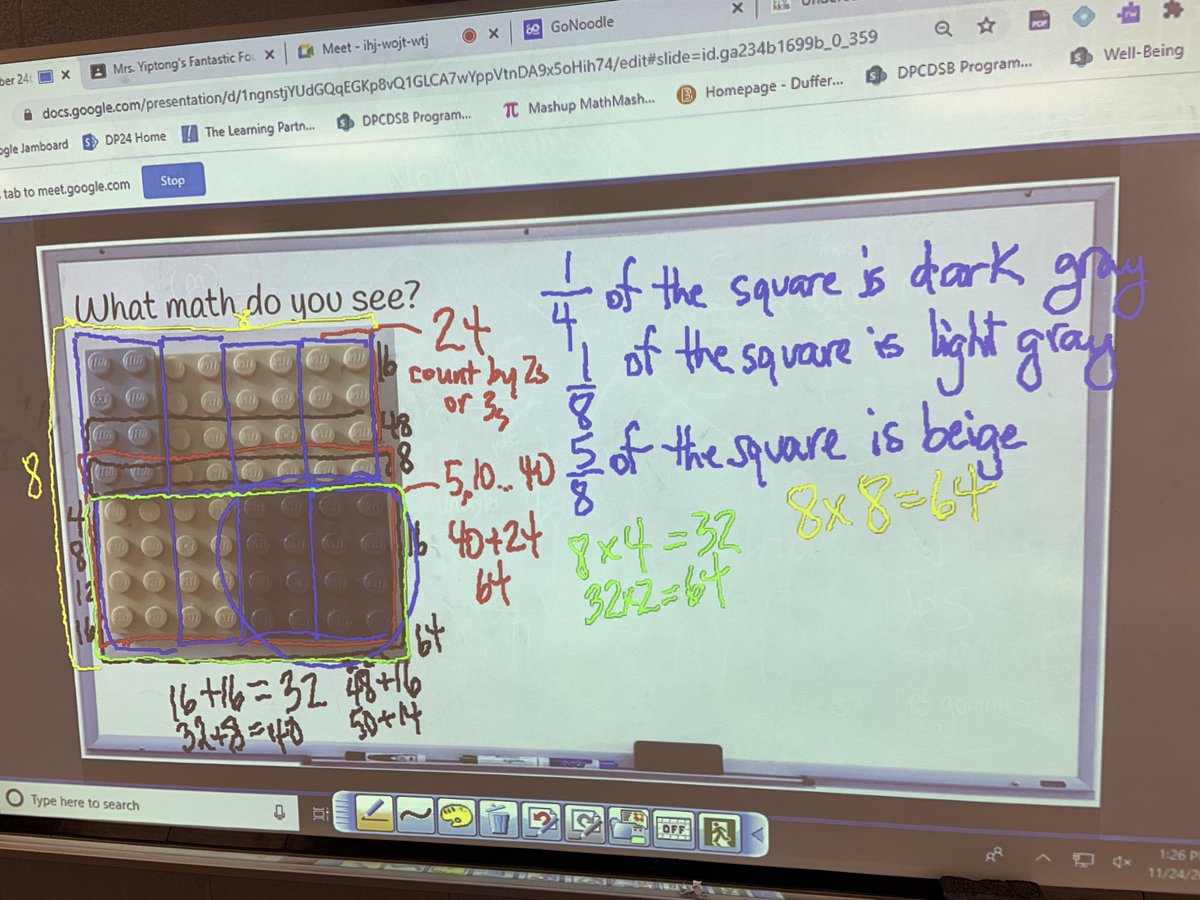 ber 24t
Mrs. Yiptong's Fantastic Fou
Meet - ihj-wojt-wtj
GoNoodle
docs.google.com/presentation/d/1ngnstjYUdGQqEGKp8vQ1GLCA7wYppVtnDA9x5oHih74/edit#slide=id.ga234b1699b_0_359
ogle Jamboard
DP24 Home
The Learning Partn...
DPCDSB Program...
Mashup MathMash...
Homepage - Duffer...
DPCDSB Program...
Well-Being
tab to meet.google.com
Stop
What math do you see?
8
8
16
48
8
4
8
12
16
16
64
24
count by 2s
or 3s
5,10... 40
40+24
64
1/4 of the square is dark gray
1/8 of the square is light gray
5/8 of the square is beige
8x4=32
32x2=64
8x8=64
16+16=32
32+8=40
48+16
50+14
Type here to search
OFF
1:26 P
11/24/2